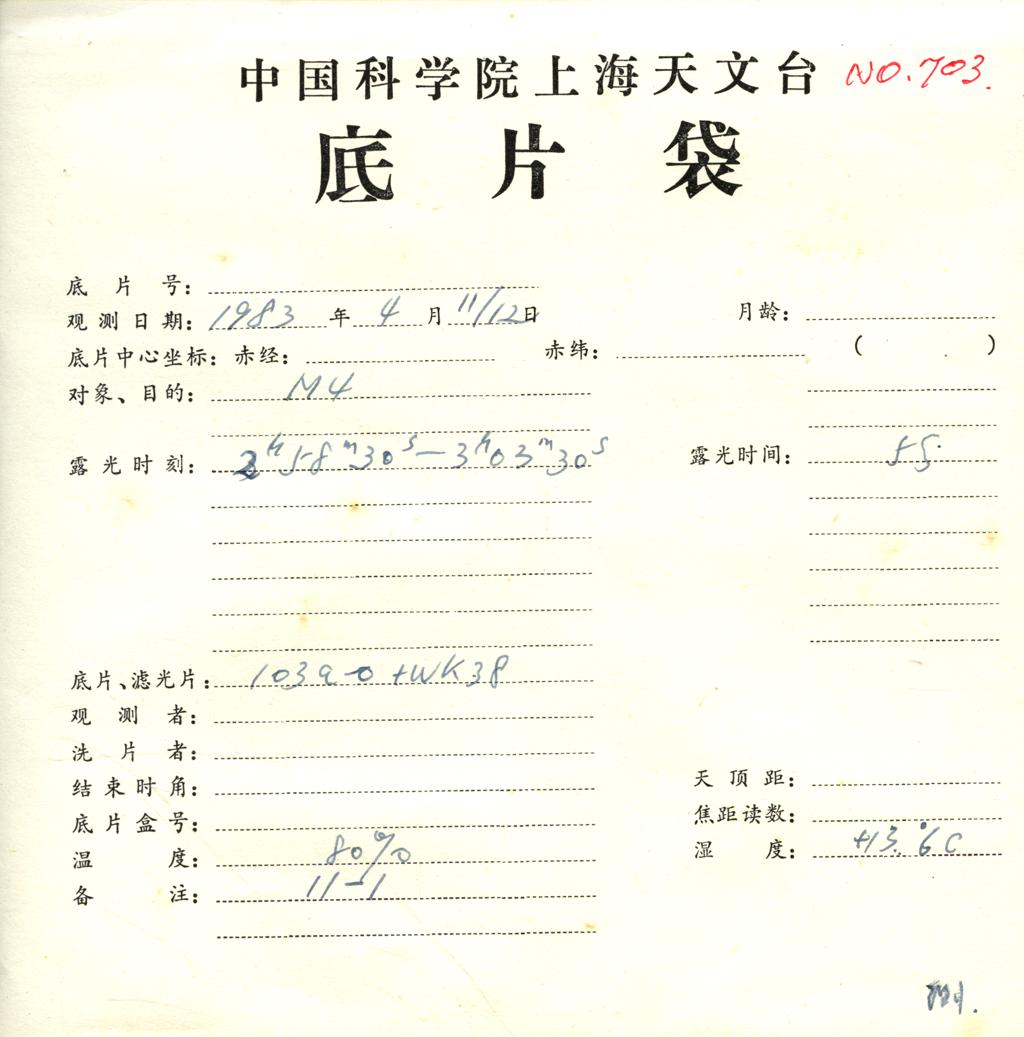 中国科学院上海天文台 NO.703.
底片袋
底片号:
观测日期: 1983 年 4 月 11/12日 月龄:
底片中心坐标: 赤经: 赤纬: ( . )
对象、目的: M4
露光时刻: 2h58m30s—3h03m30s 露光时间: 55
底片、滤光片: 103a-0+WK38
观测者:
洗片者:
结束时角: 天顶距:
底片盒号: 焦距读数:
温度: 80% 湿度: +13.°6C
备注: 11-1